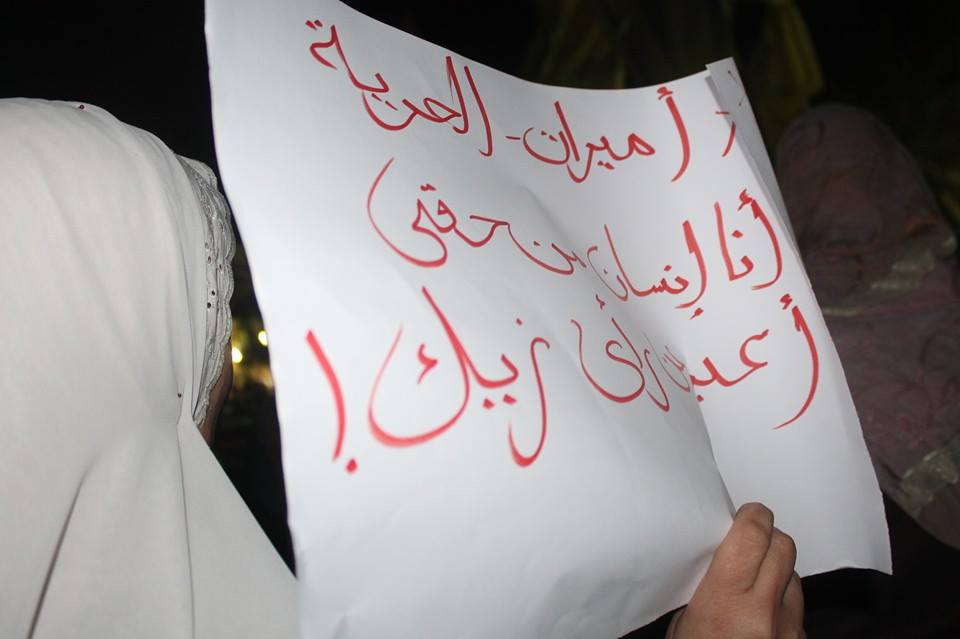 أميرات_الحرية
أنا إنسان من حقى
أعبر عن رأى زيك !